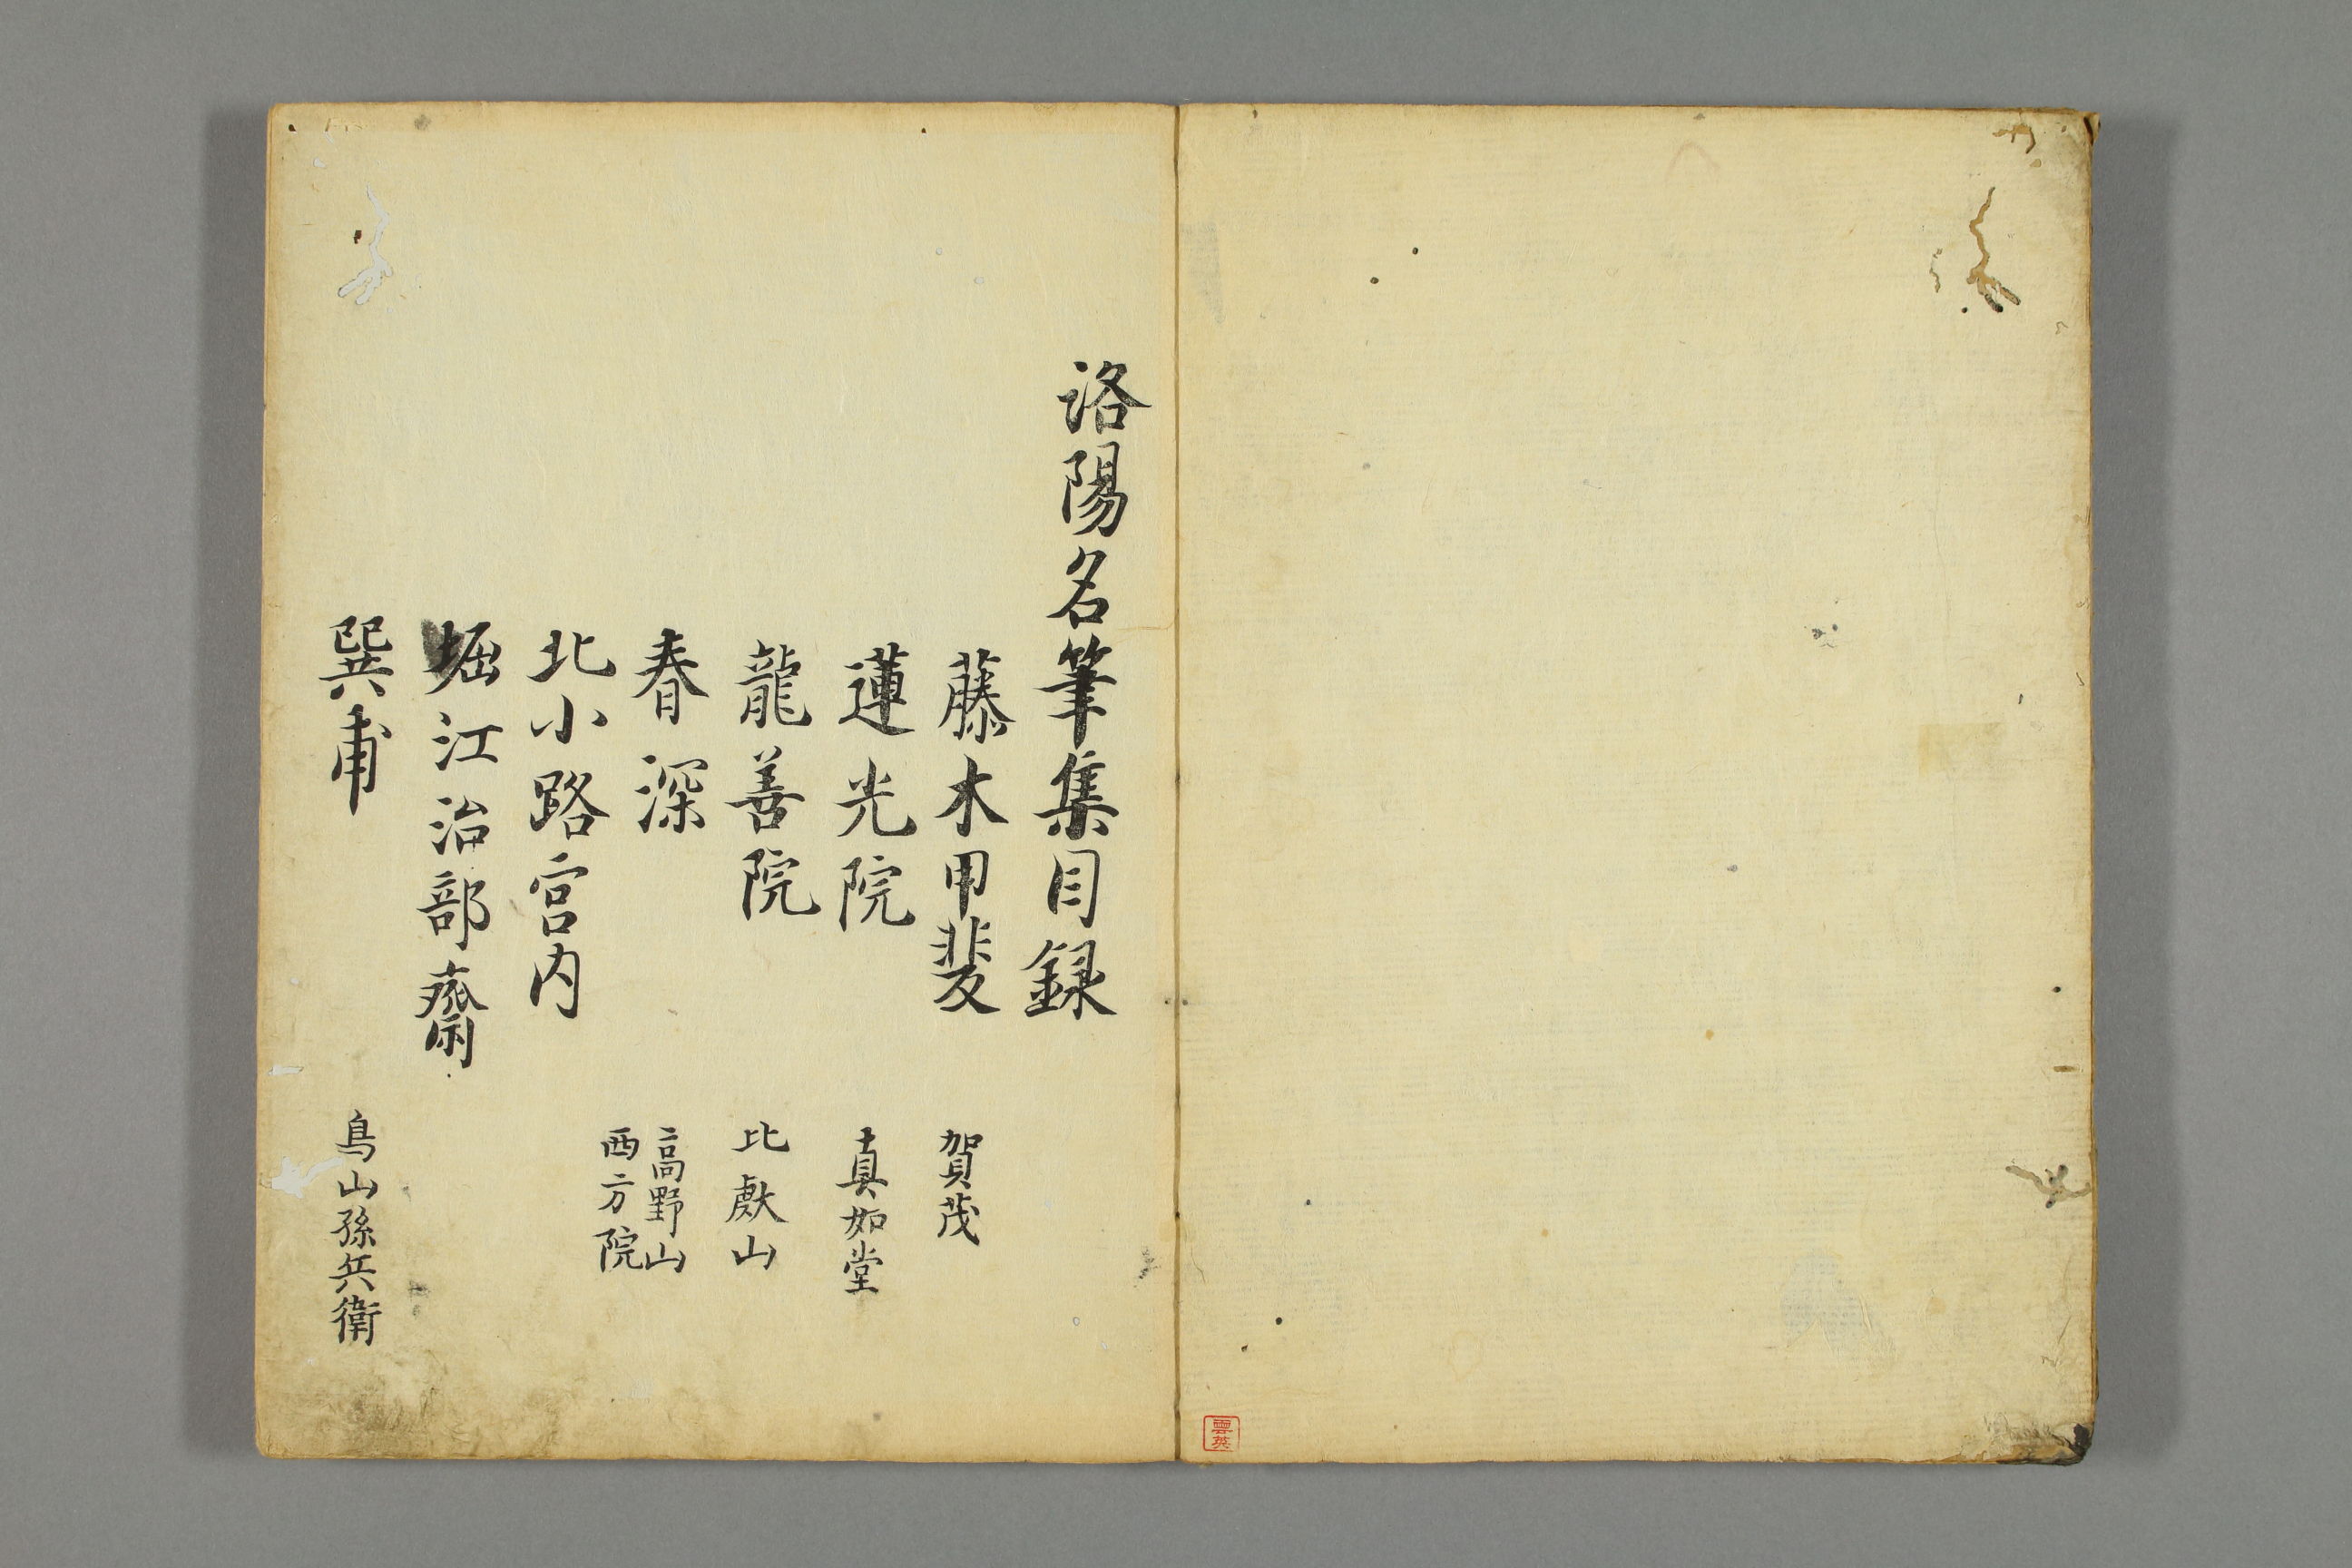 洛陽名筆集目録
藤木甲斐 賀茂
蓮光院 真如堂
龍善院 比叡山
春深 高野山
西方院
北小路宮内
堀江治部齋
巽甫 鳥山孫兵衛
雲英